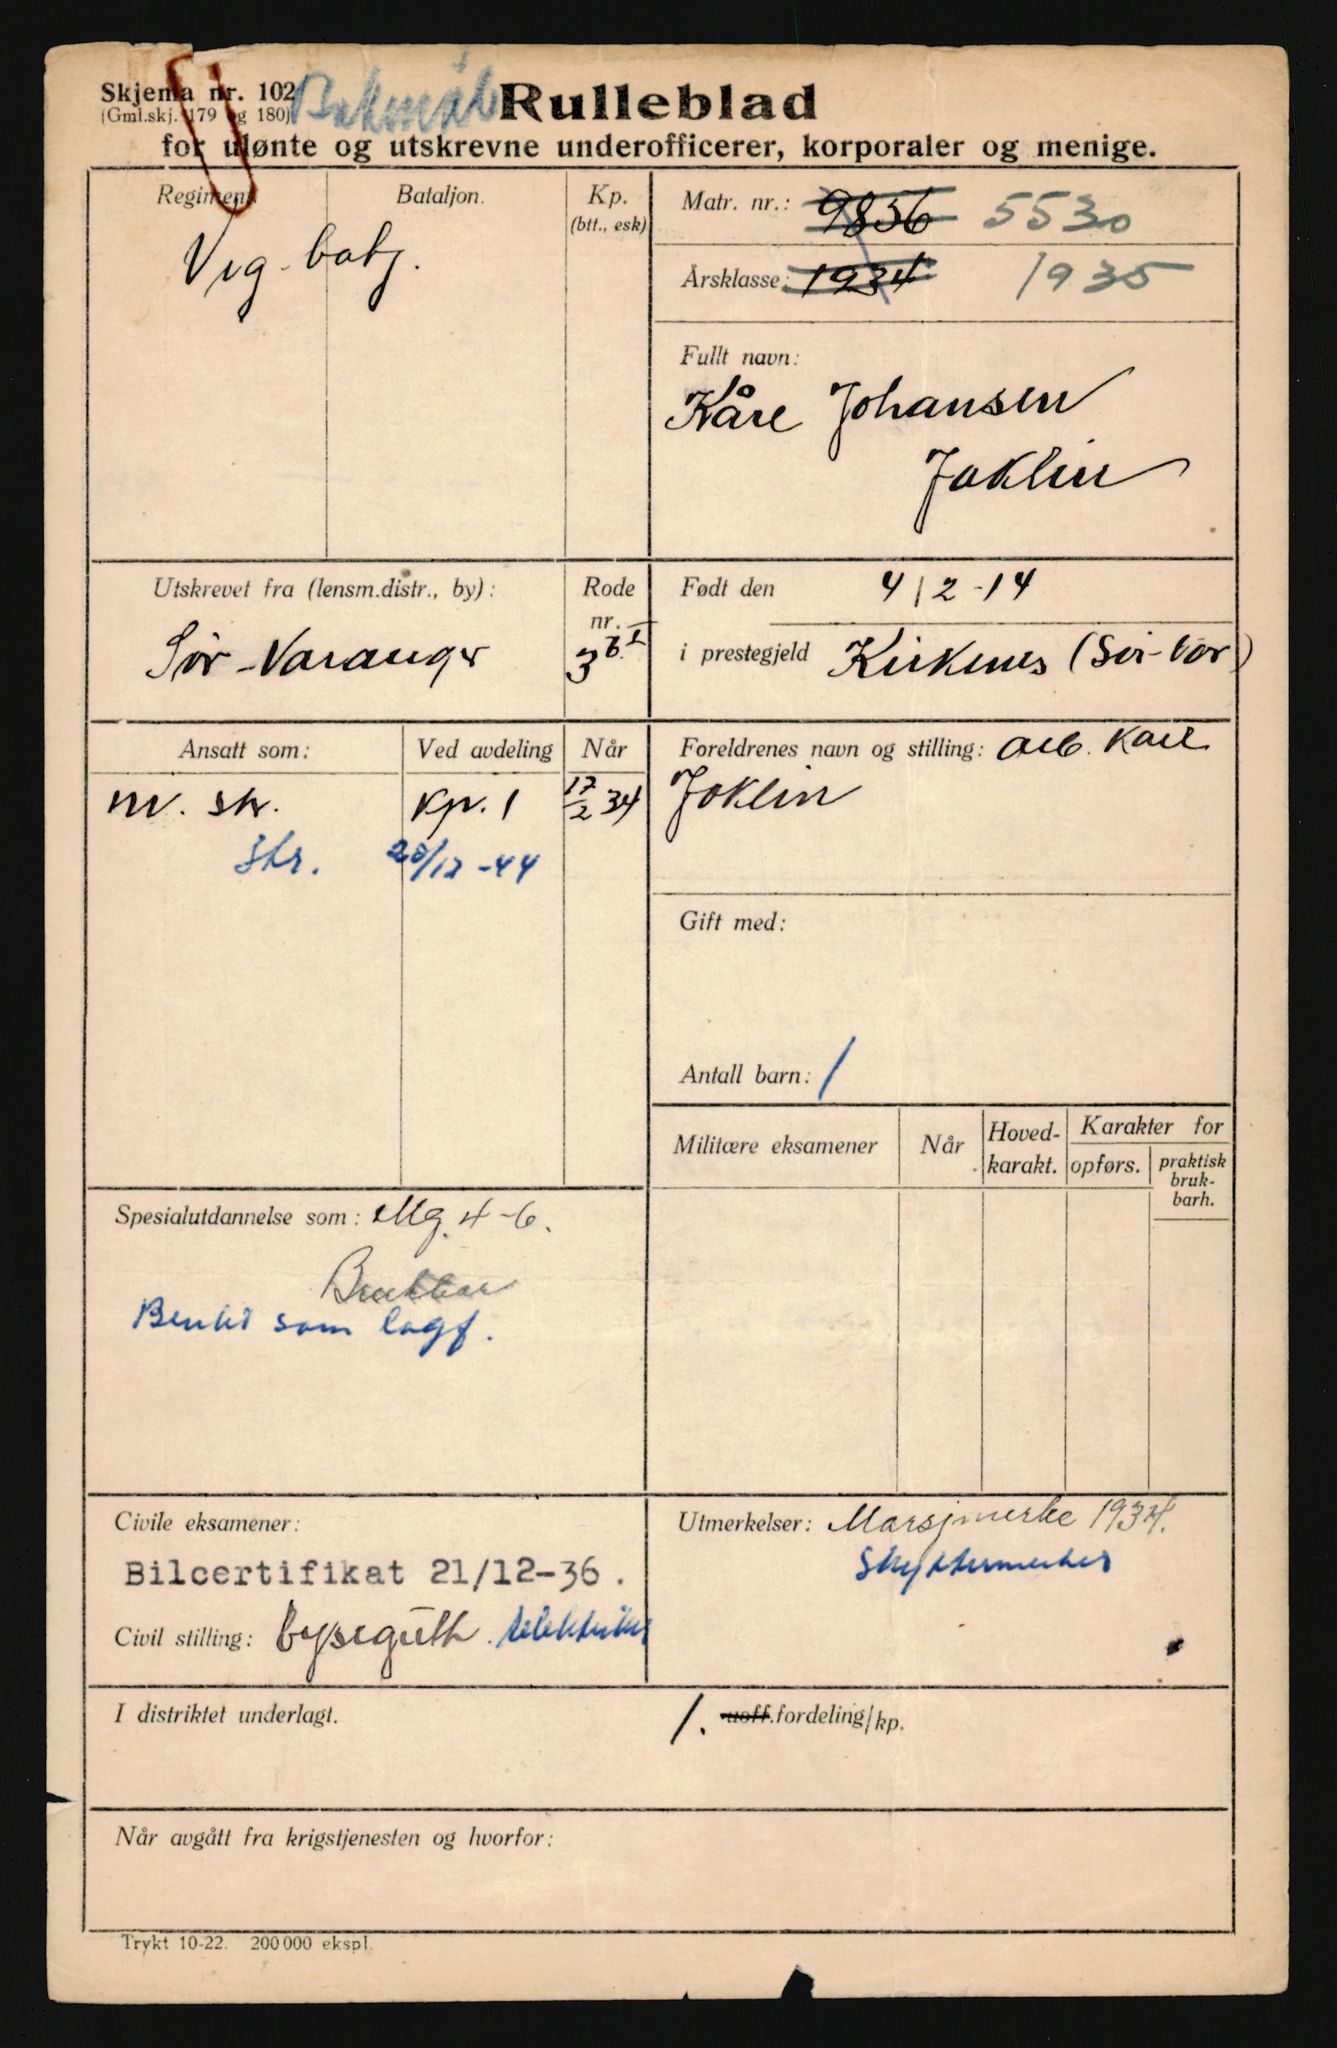 Skjema nr. 102 Bokmål Rulleblad
(Gml.skj. 179 og 180)
for ulønte og utskrevne underofficerer, korporaler og menige.
Regiment Bataljon. Kp.
(btt., esk)
Vrg. batj.
Matr. nr.: 9856 5530
Årsklasse: 1934 1935
Fullt navn:
Kåre Johansen
Joklin
Utskrevet fra (lensm.distr., by): Rode
nr.
Sør-Varanger 3b.I
Født den 4/2-14
i prestegjeld Kirkenes (Sør-Var)
Ansatt som: Ved avdeling Når
nv. skr. Kp. 1 17/2 34
skr. 20/12-44
Foreldrenes navn og stilling: Arb. Karl
Joklin
Gift med:
Antall barn: 1
Militære eksamener Når Hoved-
karakt. Karakter for
opførs. praktisk
bruk-
barh.
Spesialutdannelse som: Mg. 4-6.
Brukbar
Brukt som lagf.
Civile eksamener:
Bilcertifikat 21/12-36.
Civil stilling:
Utmerkelser: Marsjmerke 1934.
Skyttermerket
I distriktet underlagt. 1. uoff.fordeling/kp.
Når avgått fra krigstjenesten og hvorfor:
Trykt 10-22. 200 000 ekspl.